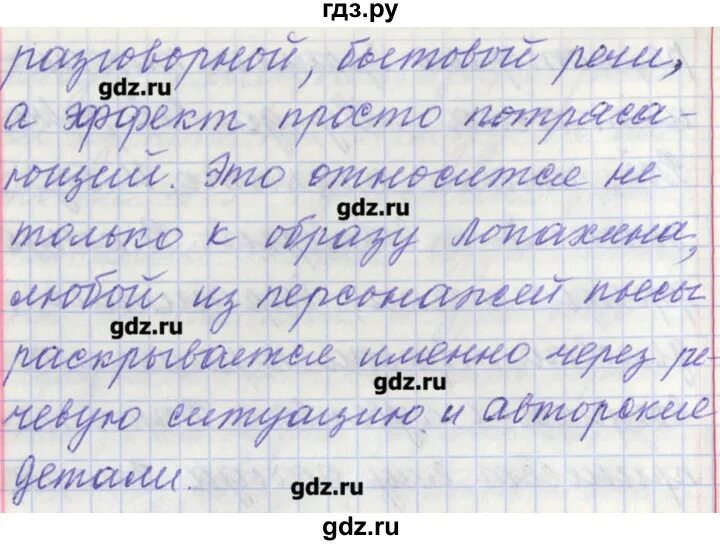 гдз.ру
разговорной, бытовой речи,
gdz.ru
а эффект просто потряса-
ющий. Это относится не
gdz.ru
только к образу Лопахина,
любой из персонажей пьесы
gdz.ru
раскрывается именно через ре-
gdz.ru
чевую ситуацию и авторские
детали.
gdz.ru
gdz.ru